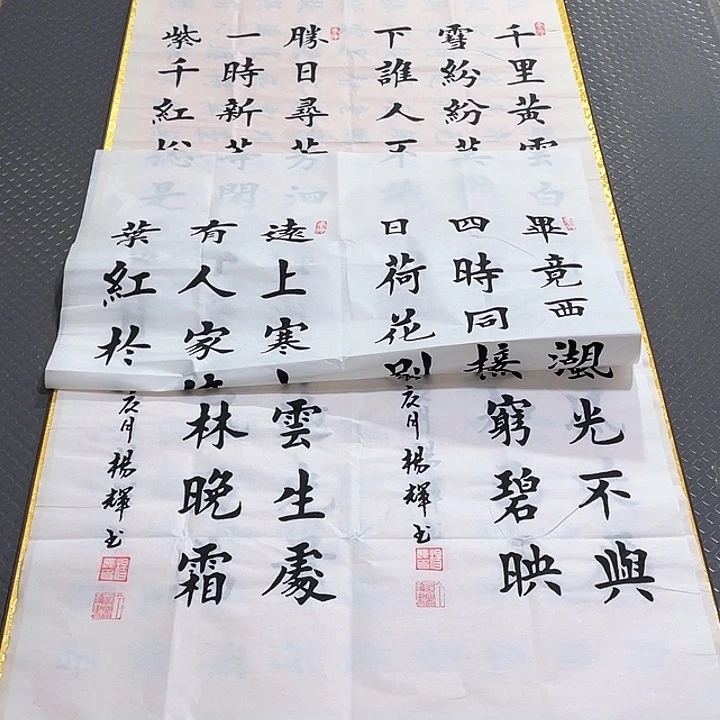 千里黃雲白
雪紛紛莫
下誰人不
勝日尋芳泗
一時新等閒
紫千紅總是
畢竟西湖光不與
四時同接窮碧映
日荷花別
月楊輝书
遠上寒雲生處
有人家林晚霜
葉紅於
月楊輝书